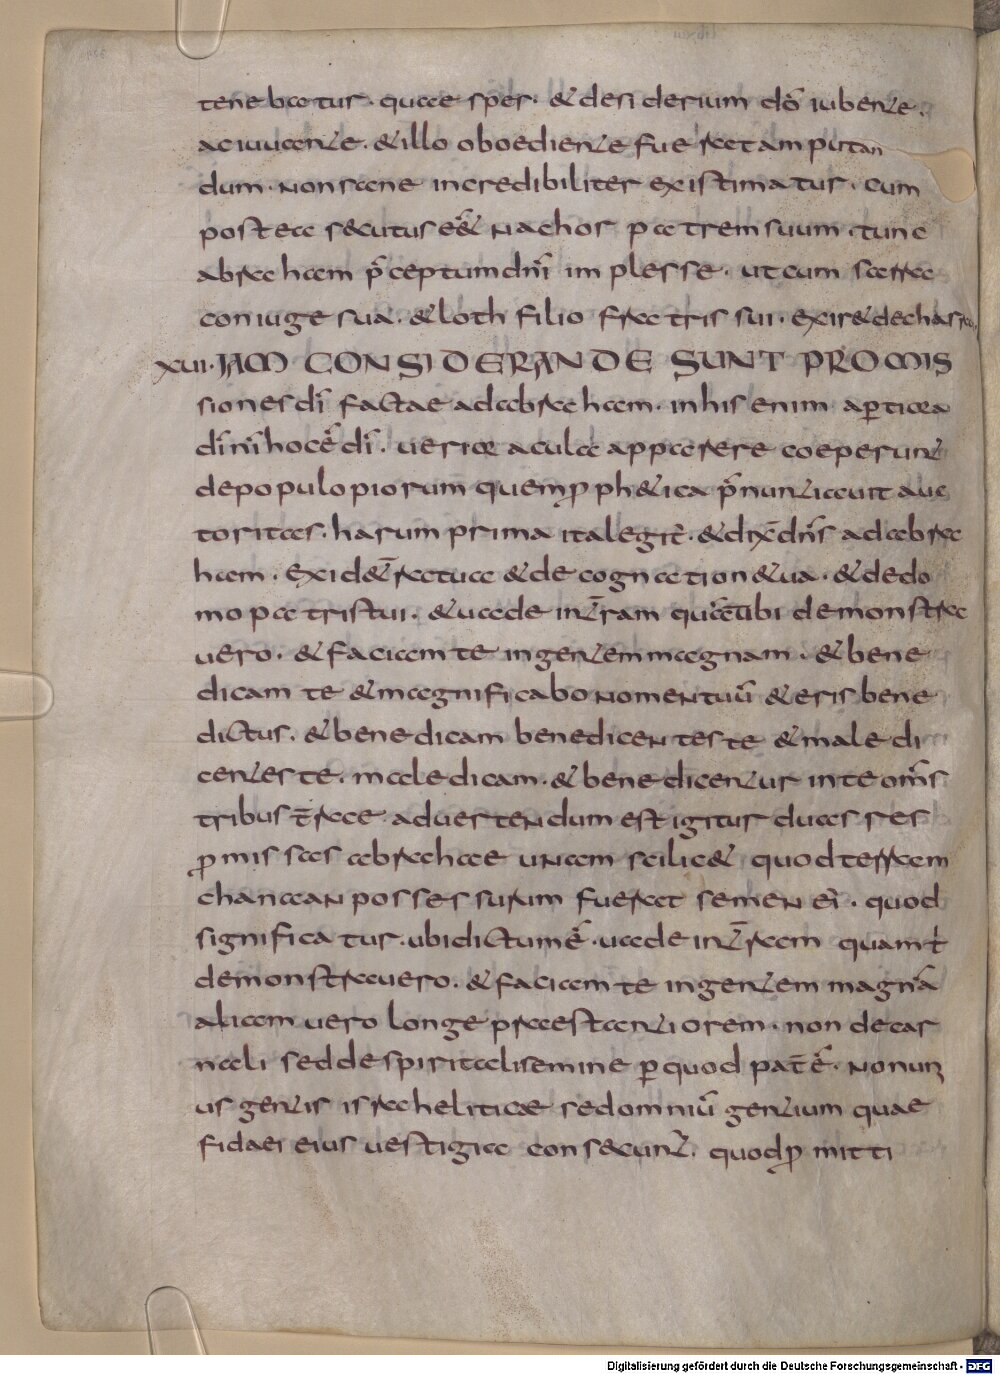 tenebatur. quae sper. & desiderium dō iubente.
ac iuuante. & illo oboediente fuerat am putan
dum. non sane incredibiliter existimatur. cum
postea secutus eē& nachor patrem suum. tunc
abraham p̄ceptum dnī implesse. ut cum sarra
coniuge sua. & loth filio fratris sui. exir& de charra
XVI. IAM CONSIDERANDE SUNT PROMIS
siones dī factae ad abraham. in his enim apertiora
dī nī hoc ē dī. ueri oracula apparere coeperunt
de populo piorum quem p̄ph&ica p̄nuntiauit auc
toritas. harum prima ita legit̄. & dix̄ dn̄s ad abra
ham. exi de t̄ra tua & de cognation& ua. & de do
mo patris tui. & uade in t̄ram quācūtibi demonstra
uero. & faciam te in gentem magnam. & bene
dicam te & magnificabo nomen tuū & eris bene
dictus. & benedicam benedicentes te & maledi
centes te. maledicam. & benedicentur in te om̄s
tribus t̄rae. aduertendum est igitur duas res
p̄missas abrahae unam scilic& quod terram
chanaan possessurum fuerat semen eī. quod
significatur. ubi dictum ē. uade in t̄ram quam t̄
demonstrauero. & faciam te in gentem magnā
aliam uero longe praestantiorem. non de car
nali sed de spiritali semine per quod pat̄ ē. non un
us gentis israheliticae sed omniū gentium quae
fidaei eius uestigia consecunt̄. quod p̄mitti
Digitalisierung gefördert durch die Deutsche Forschungsgemeinschaft - DFG